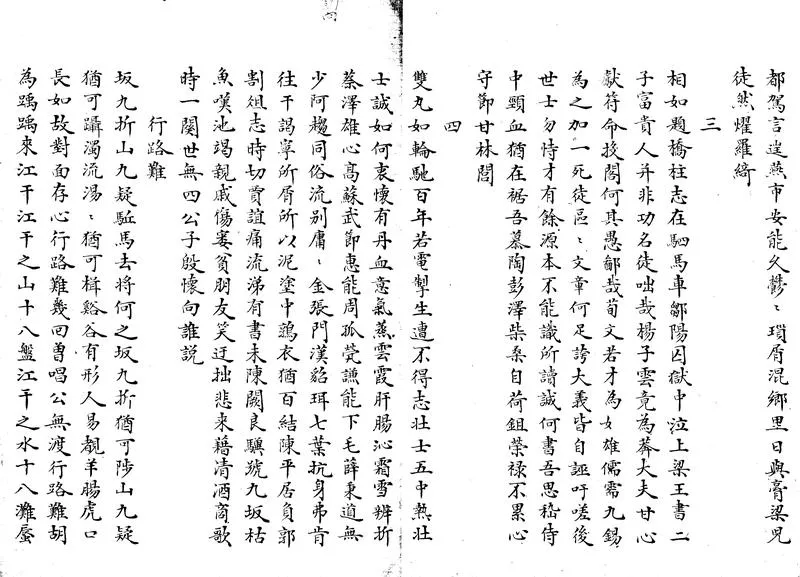 都駕言遊燕市安能久鬱〻瑣屑混鄉里日與膏粱兒
徒然燿羅綺
三
相如題橋柱志在駟馬車鄒陽囚獄中泣上梁王書二
子富貴人并非功名徒咄哉楊子雲竟為莽大夫甘心
獻符命投閣何其愚鄙哉荀文若才為奸雄儒需九錫
為之加一死徒區〻文章何足誇大義皆自誣吁嗟後
世士勿恃才有餘源本不能識所讀誠何書吾思嵇侍
中頸血猶在裾吾慕陶彭澤柴桑自荷鉏榮祿不累心
守節甘林閭
四
雙丸如輪馳百年若電掣生遭不得志壯士五中熱壯
士誠如何衷懷有丹血意氣蒸雲霞肝腸沁霜雪辨折
蔡澤雄心高蘇武節惠能周孤煢謙能下毛薛秉道無
少阿趨同俗流別庸〻金張門漢貂珥七葉抗身弗肯
往干謁寧所屑所以泥塗中鶉衣猶百結陳平居負郭
割俎志時切賈誼痛流涕有書未陳闕良驥號九坂枯
魚嘆池竭親戚傷窶貧朋友笑迂拙悲來藉清酒商歌
時一闋世無四公子殷懷向誰說
行路難
坂九折山九疑駈馬去將何之坂九折猶可陟山九疑
猶可躡濁流湯〻猶可楫谿谷有形人易覩羊腸虎口
長如故對面存心行路難幾回曾唱公無渡行路難胡
為踽踽來江干江干之山十八盤江干之水十八灘蜃